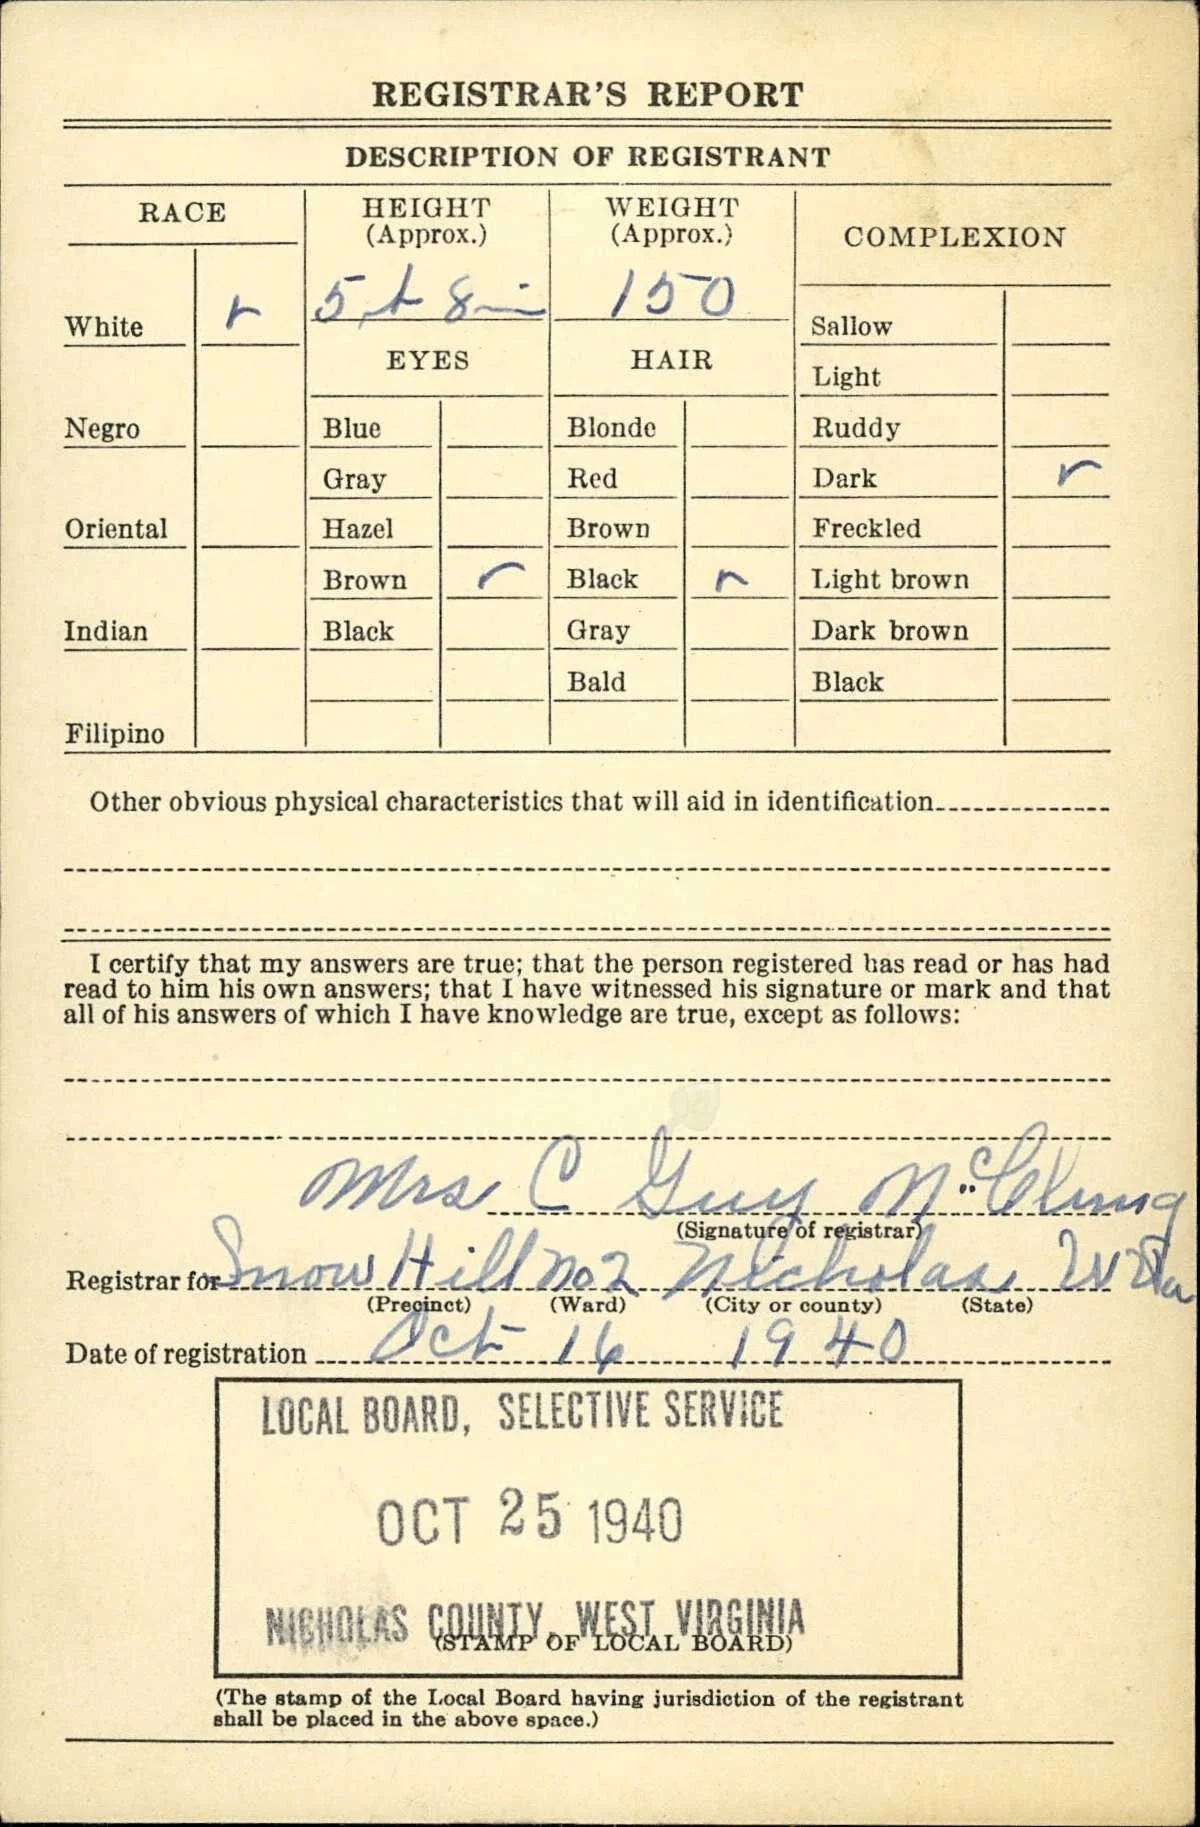 REGISTRAR'S REPORT
DESCRIPTION OF REGISTRANT
RACE HEIGHT (Approx.) WEIGHT (Approx.) COMPLEXION
White 5 ft 8 in 150 Sallow
EYES HAIR
Light
Negro Blue Blonde Ruddy
Gray Red Dark ✓
Oriental Hazel Brown Freckled
Brown ✓ Black ✓ Light brown
Indian Black Gray Dark brown
Bald Black
Filipino
Other obvious physical characteristics that will aid in identification
I certify that my answers are true; that the person registered has read or has had
read to him his own answers; that I have witnessed his signature or mark and that
all of his answers of which I have knowledge are true, except as follows:
Mrs C Guy McClung
(Signature of registrar)
Registrar for Snow Hill No 2 Nicholas W Va
(Precinct) (Ward) (City or county) (State)
Date of registration Oct 16 1940
LOCAL BOARD, SELECTIVE SERVICE
OCT 25 1940
NICHOLAS COUNTY, WEST VIRGINIA
(STAMP OF LOCAL BOARD)
(The stamp of the Local Board having jurisdiction of the registrant
shall be placed in the above space.)